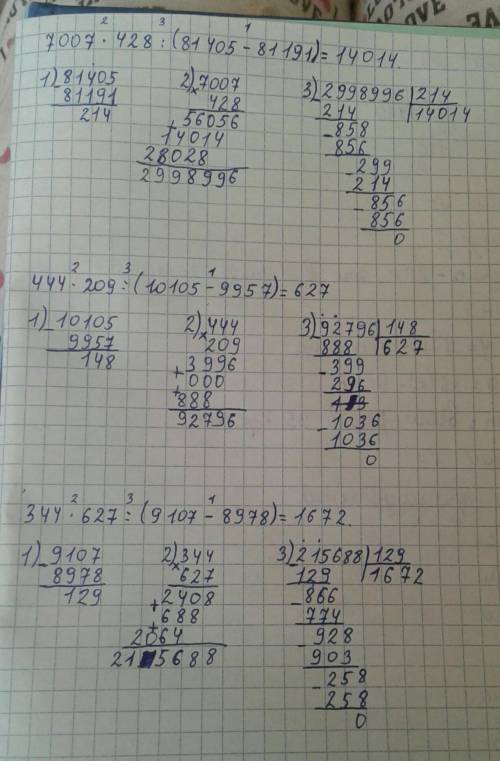 7007 · 428 : (81405 - 81191) = 14014.
1) 81405
81191
214
2) × 7007
428
+ 56056
14014
28028
2998996
3) 2998996 | 214
214 | 14014
- 858
856
- 299
214
- 856
856
0
444 · 209 : (10105 - 9957) = 627
1) - 10105
9957
148
2) × 444
209
+ 3996
+ 000
888
92796
3) - 92796 | 148
888 | 627
- 399
296
- 1036
1036
0
344 · 627 : (9107 - 8978) = 1672.
1) - 9107
8978
129
2) × 344
627
+ 2408
+ 688
2064
215688
3) - 215688 | 129
129 | 1672
- 866
774
- 928
903
- 258
258
0